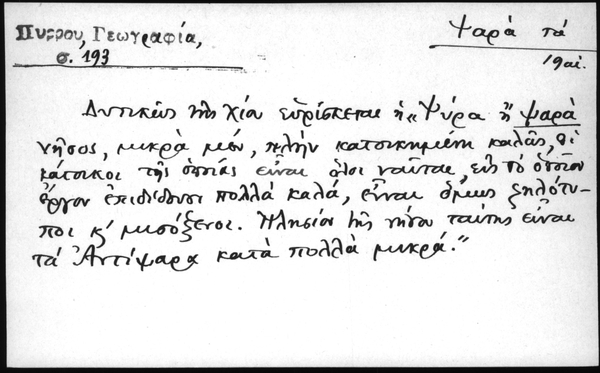 Πύρρου, Γεωγραφία,
σ. 193
Ψαρὰ τά
19 αἰ.
Δυτικῶς τῆς Χίου εὑρίσκεται ἡ "Ψύρα ἢ Ψαρὰ
νῆσος, μικρὰ μέν, πλὴν κατοικημένη καλῶς, οἱ
κάτοικοι τῆς ὁποίας εἶναι ὅλοι ναῦται, εἰς τὸ ὁποῖον
ἔργον ἐπιδίδουσι πολλὰ καλά, εἶναι ὅμως ζηλότυ-
ποι κ' μισόξενοι. Πλησίον τῆς νήσου ταύτης εἶναι
τά Ἀντίψαρα κατὰ πολλὰ μικρά."